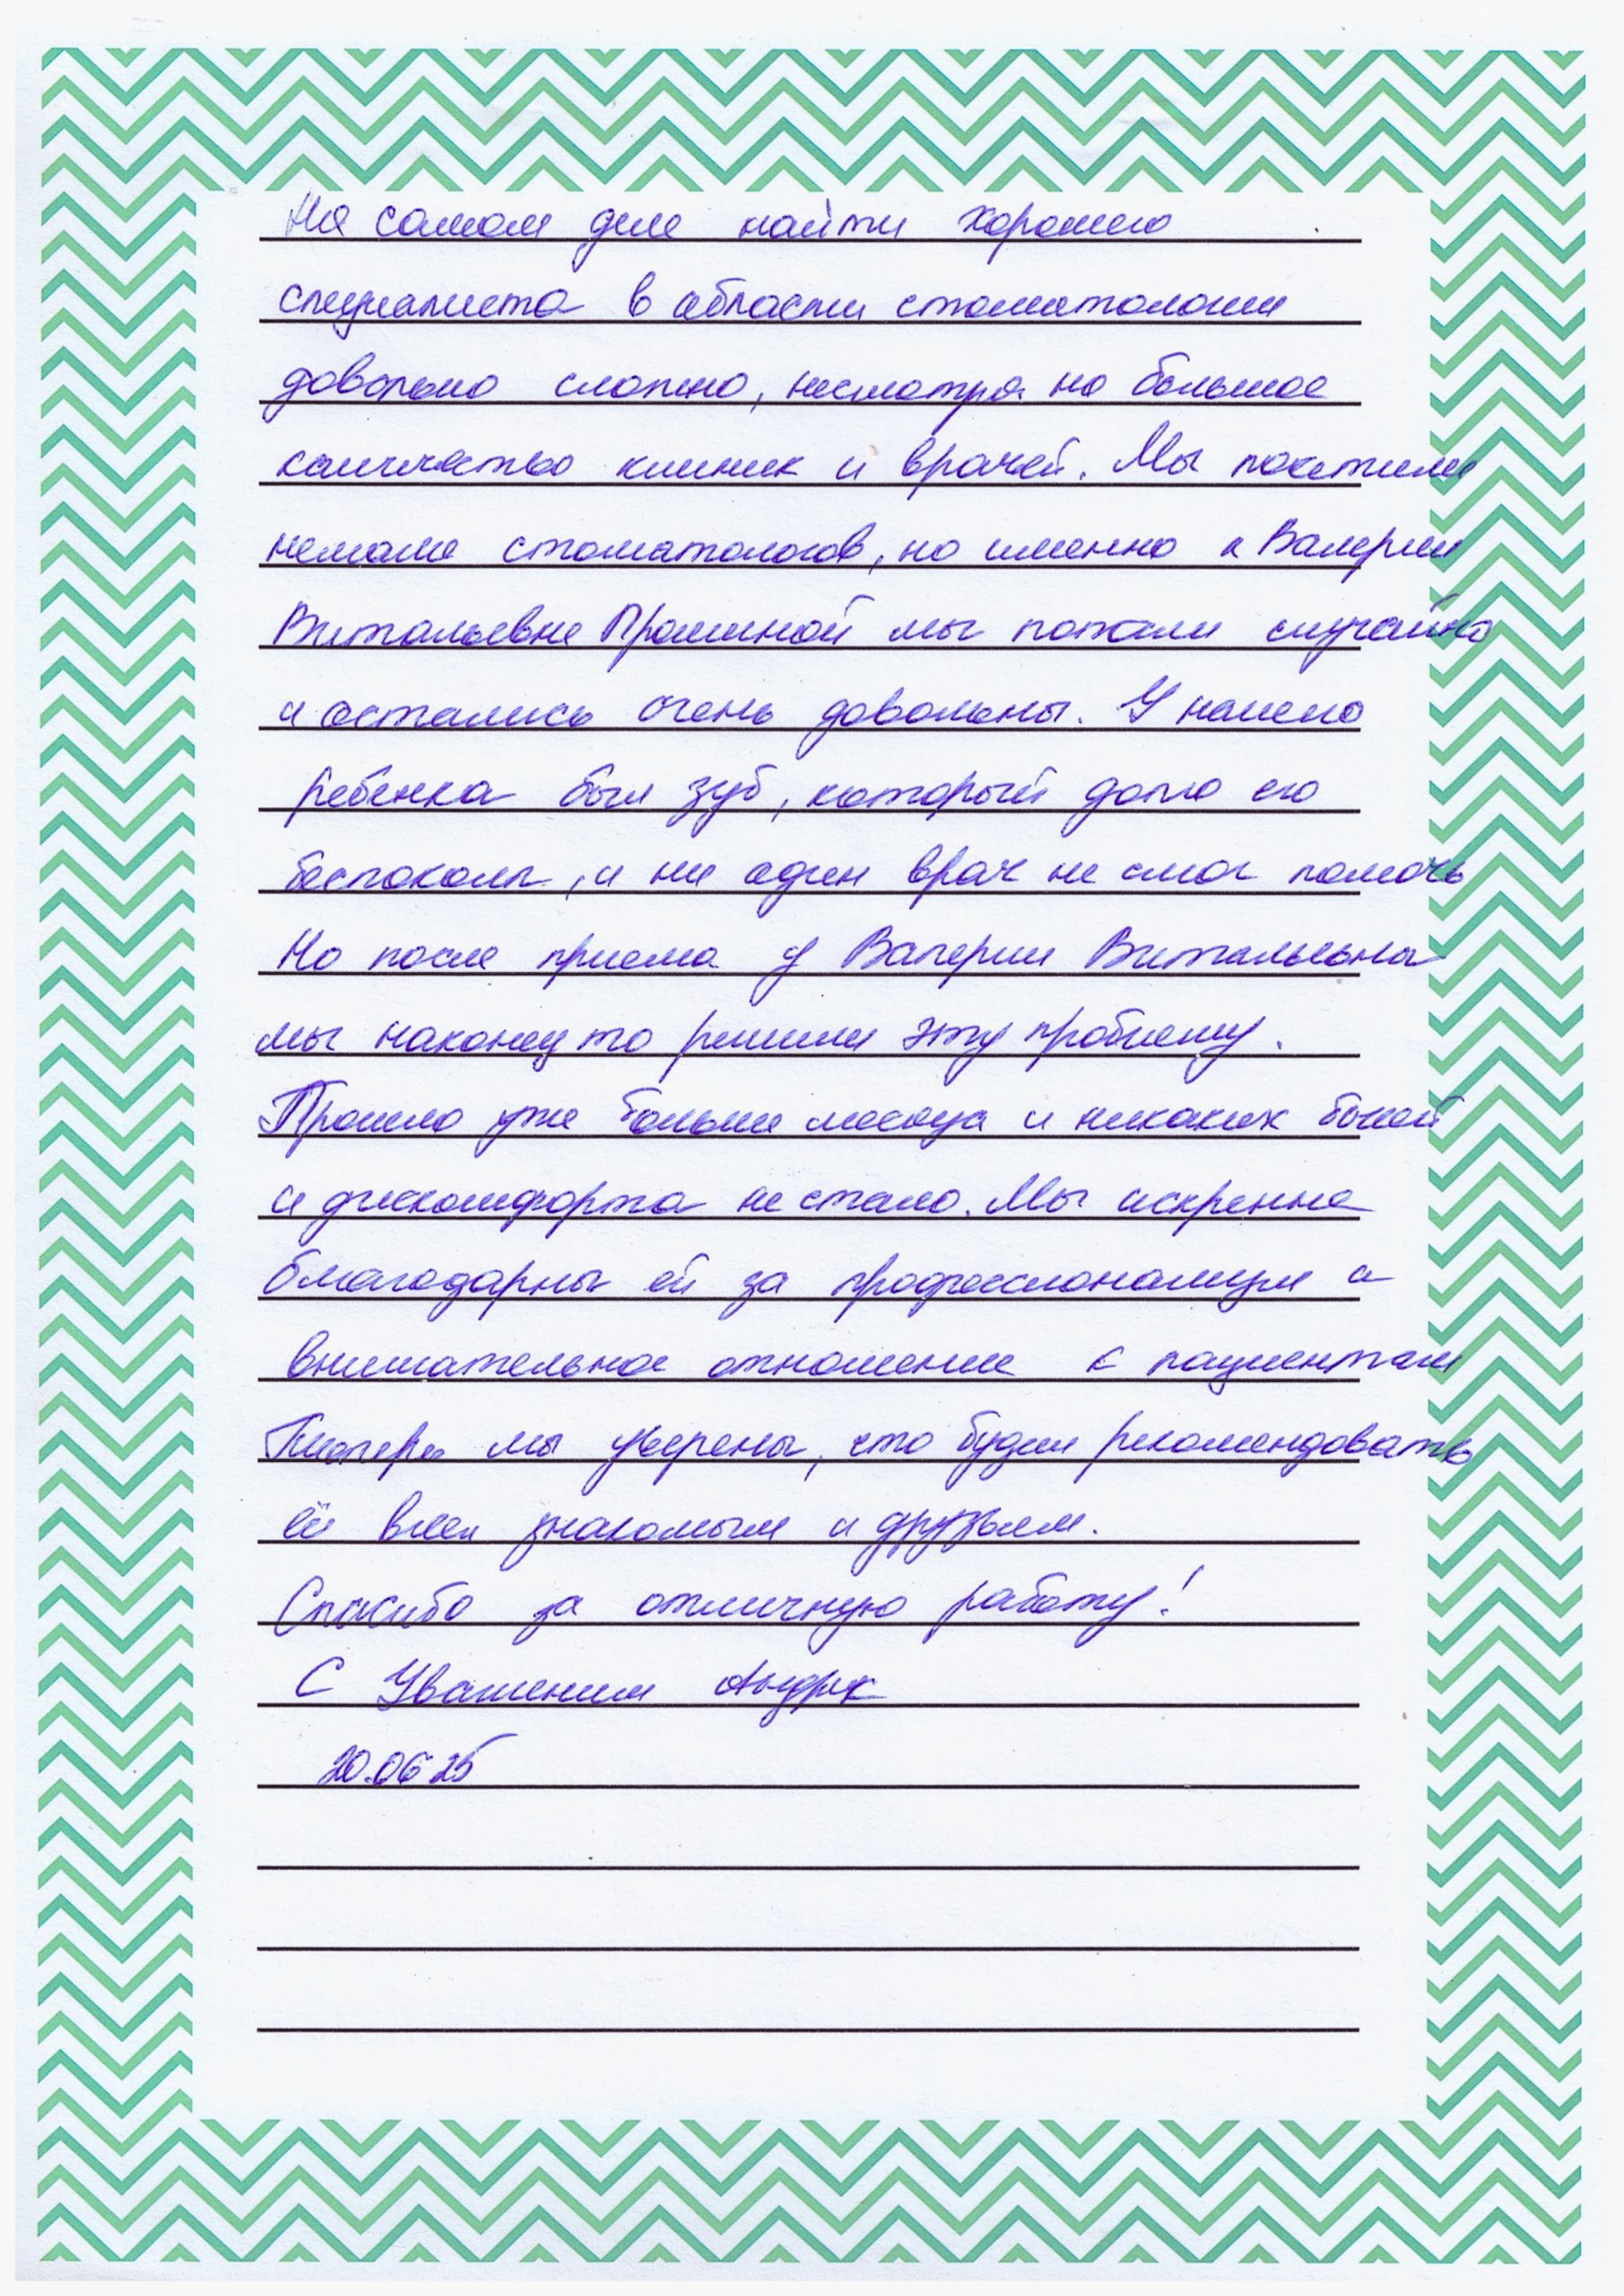 На самом деле найти хорошего
специалиста в области стоматологии
довольно сложно, несмотря на большое
количество клиник и врачей. Мы посетили
немало стоматологов, но именно к Валерии
Витальевне Прошиной мы попали случайно
и остались очень довольны. У нашего
ребенка был зуб, который долго его
беспокоил, и ни один врач не смог помочь
Но после приема у Валерии Витальевна
мы наконец то решили эту проблему.
Прошло уже больше месяца и никаких болей
и дискомфорта не стало. Мы искренне
благодарны ей за профессионализм и
внимательное отношение к пациентам
Теперь мы уверены, что будем рекомендовать
её всем знакомым и друзьям.
Спасибо за отличную работу!
С Уважением
20.06 25